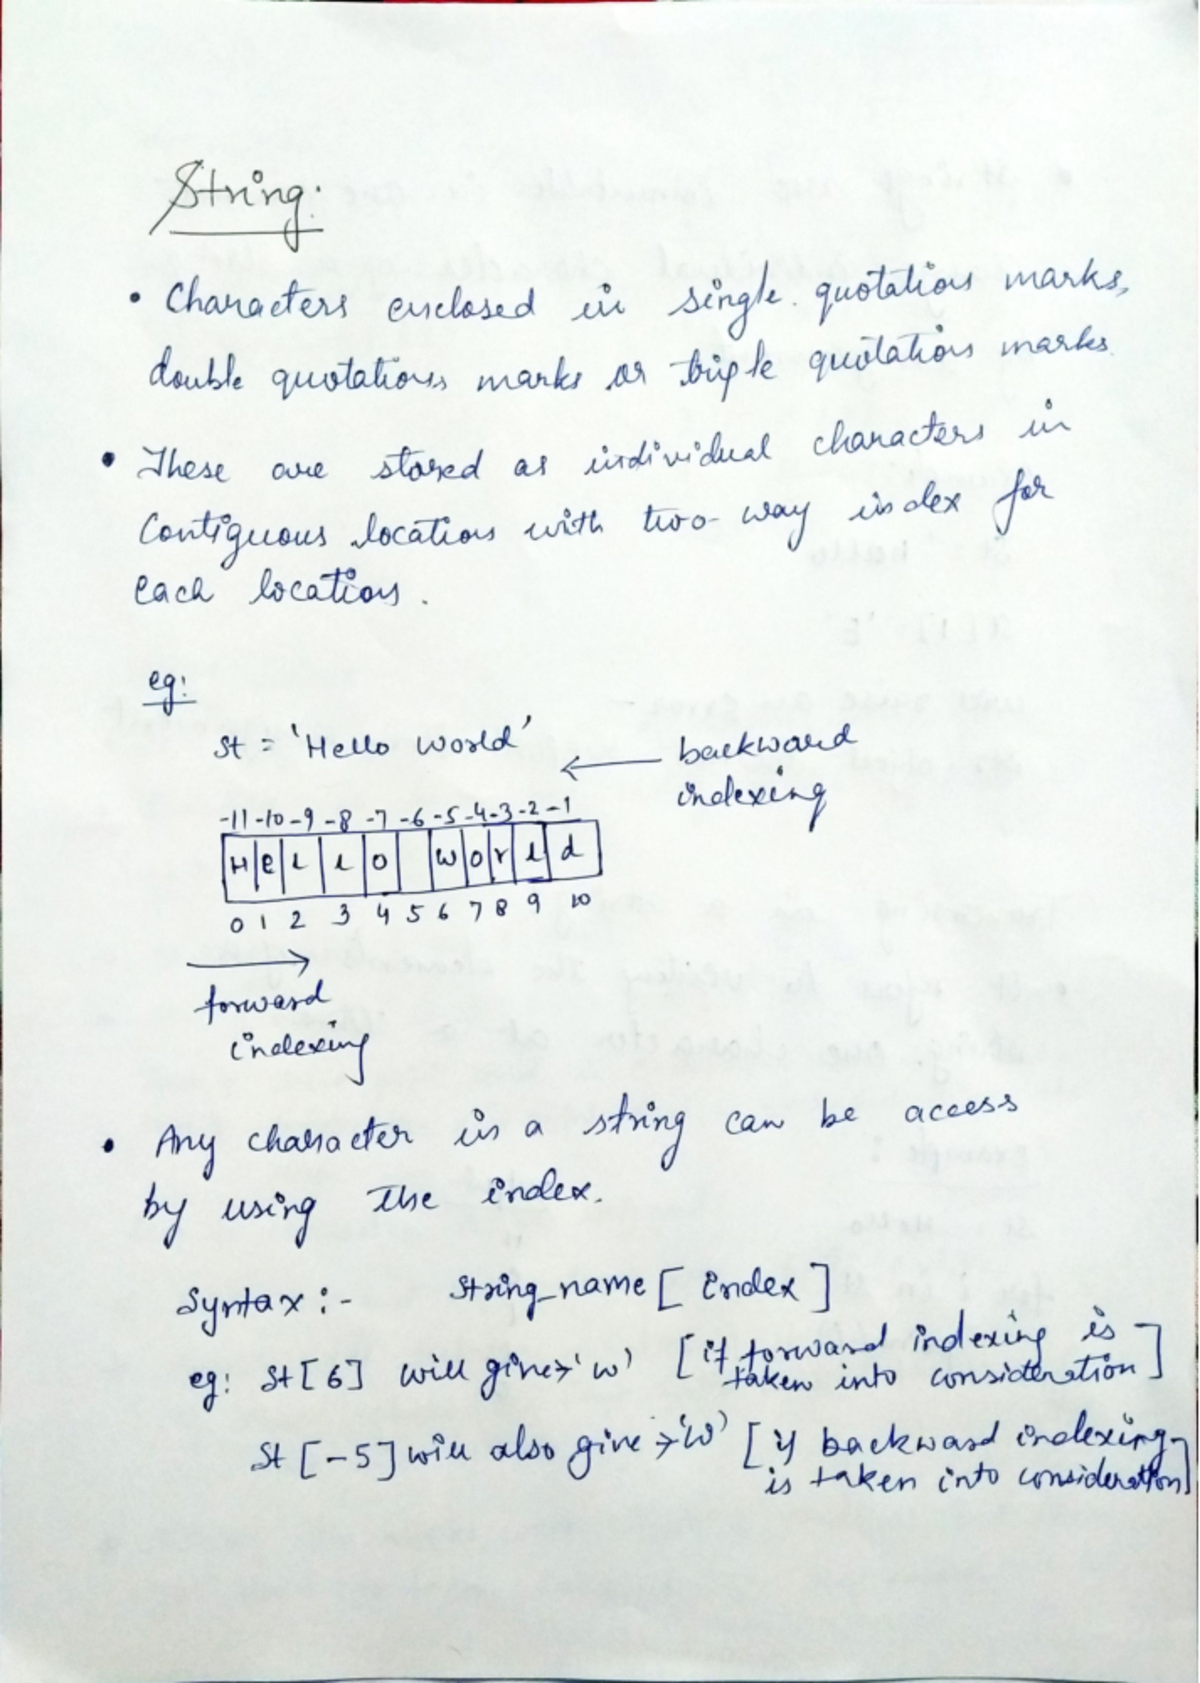 String:
• Characters enclosed in single quotation marks,
double quotations marks or triple quotation marks.
• These are stored as individual characters in
Contiguous location with two-way index for
each location.
eg:
st = 'Hello world'
backward
indexing
-11 -10 -9 -8 -7 -6 -5 -4 -3 -2 -1
H e l l o w o r l d
0 1 2 3 4 5 6 7 8 9 10
forward
indexing
• Any character in a string can be access
by using the index.
Syntax :- String_name [ index ]
eg: st [ 6 ] will give → 'w' [ if forward indexing is
taken into consideration ]
st [ -5 ] will also give → 'w' [ if backward indexing
is taken into consideration ]